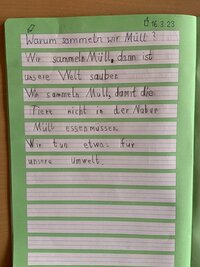 16.3.23
Warum sammeln wir Müll?
Wir sammeln Müll, dann ist
unsere Welt sauber.
Wir sammeln Müll, damit die
Tiere nicht in der Natur
Müll essen müssen.
Wir tun etwas für
unsere Umwelt.